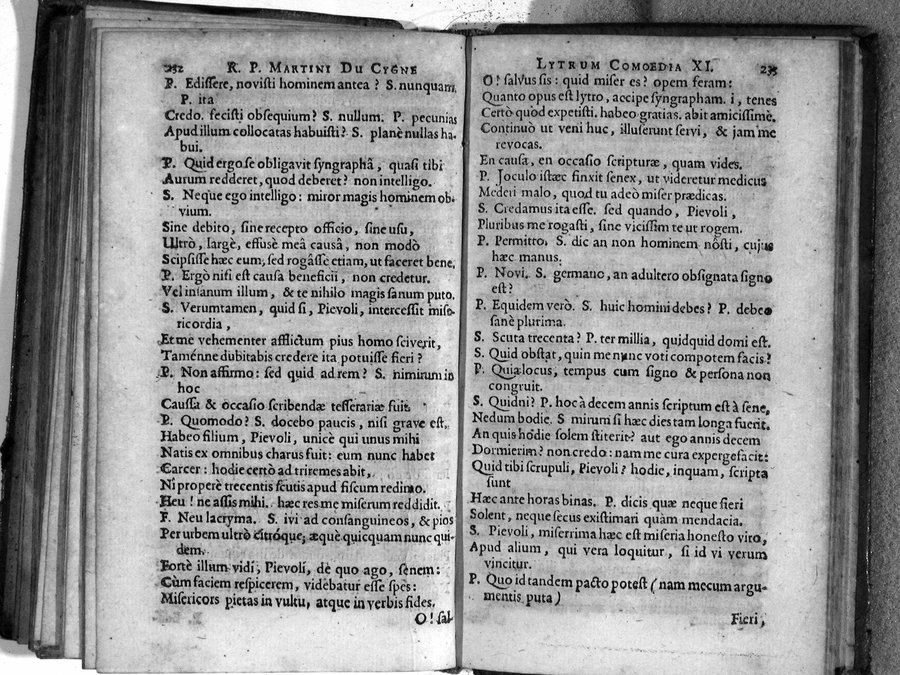 232 R. P. MARTINI DU CYGNE
P. Edissere, novisti hominem antea ? S. nunquam,
P. ita
Credo. fecisti obsequium? S. nullum. P. pecunias
Apud illum collocatas habuisti? S. planè nullas ha-
bui.
P. Quid ergo se obligavit syngraphâ, quasi tibi
Aurum redderet, quod deberet? non intelligo.
S. Neque ego intelligo: miror magis hominem ob-
vium.
Sine debito, sine recepto officio, sine usu,
Ultrò, largè, effusè meâ causâ, non modò
Scripsisse hæc eum, sed rogâsse etiam, ut faceret bene.
P. Ergò nisi est causa beneficii, non credetur.
Vel insanum illum, & te nihilo magis sanum puto.
S. Verumtamen, quid si, Pievoli, intercessit miso-
ricordia,
Et me vehementer afflictum pius homo sciverit,
Taménne dubitabis credere ita potuisse fieri ?
P. Non affirmo: sed quid ad rem ? S. nimirum in
hoc
Caussa & occasio scribendæ tesserariæ fuit.
P. Quomodo? S. docebo paucis, nisi grave est.
Habeo filium, Pievoli, unicè qui unus mihi
Natis ex omnibus charus fuit: eum nunc habet
Carcer: hodie certò ad triremes abit,
Ni properè trecentis scutis apud fiscum redimo.
Heu ! ne assis mihi. hæc res me miserum reddidit.
F. Neu lacryma. S. ivi ad consanguineos, & pios
Per urbem ultrò citróque; æquè quicquam nunc qui-
dem.
Fortè illum vidi, Pievoli, de quo ago, senem:
Cùm faciem respicerem, vidèbatur esse spes:
Misericors pietas in vultu, atque in verbis fides.
O! sal-
LYTRUM COMOEDIA XI. 233
O! salvus sis : quid miser es? opem feram:
Quanto opus est lytro, accipe syngrapham. i, tenes
Certò quod expetisti. habeo gratias. abit amicissimè.
Continuò ut veni huc, illuserunt servi, & jam me
revocas.
En causa, en occasio scripturæ, quam vides.
P. Joculo istæc finxit senex, ut videretur medicus
Mederi malo, quod tu adeò miser prædicas.
S. Credamus ita esse. sed quando, Pievoli,
Pluribus me rogasti, sine vicissim te ut rogem.
P. Permitto. S. dic an non hominem nôsti, cujus
hæc manus:
P. Novi. S. germano, an adultero obsignata signo
est?
P. Equidem verò. S. huic homini debes? P. debeo
sanè plurima.
S. Scuta trecenta? P. ter millia, quidquid domi est.
S. Quid obstat, quin me nunc voti compotem facis?
P. Quia locus, tempus cum signo & persona non
congruit.
S. Quidni? P. hoc à decem annis scriptum est à sene,
Nedum hodie. S mirum si hæc dies tam longa fuerit.
An quis hodie solem stiterit? aut ego annis decem
Dormierim? non credo: nam me cura expergefacit:
Quid tibi scrupuli, Pievoli? hodie, inquam, scripta
sunt
Hæc ante horas binas. P. dicis quæ neque fieri
Solent, neque secus existimari quàm mendacia.
S. Pievoli, miserrima hæc est miseria honesto viro,
Apud alium, qui vera loquitur, si id vi verum
vincitur.
P. Quo id tandem pacto potest (nam mecum argu-
mentis puta)
Fieri,